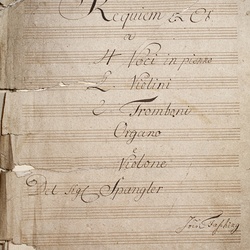 Requiem Ex
a
4 Voci in pieno
2 Violini
2 Tromboni
Organo
e
Violone
Del Sigl Spangler